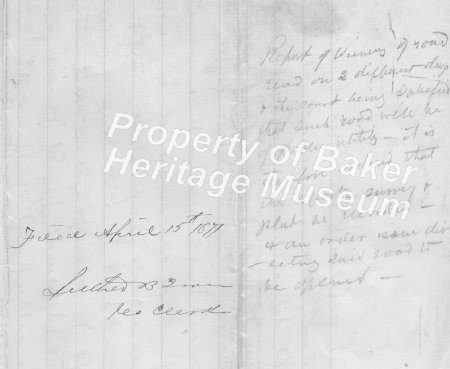 Filed April 15th 1871
Co Clerk
Report of Viewers of road
read on 2 different days
& the court being satisfied
that such road will be
of public utility – it is
that
survey &
plat be recorded –
& an order issue dir
ecting said road to
be opened –
Property of Baker
Heritage Museum